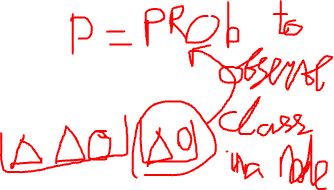 p = PROb to
observe
class
in a node